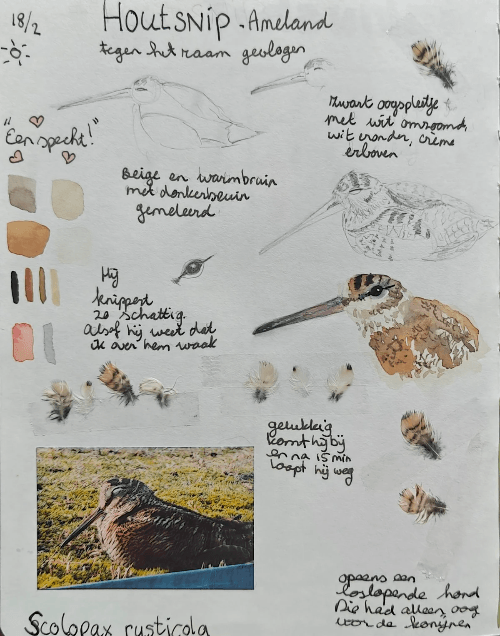 18/2
Houtsnip - Ameland
tegen het raam gevlogen
Zwart oogspleetje
met wit omzoomd,
wit eronder, crème
erboven
"Een specht!"
Beige en warmbruin
met donkerbruin
gemeleerd
Hij
knippert
zo schattig.
Alsof hij weet dat
ik over hem waak
gelukkig
komt hij bij
en na 15 min
loopt hij weg
opeens een
loslopende hond
Die had alleen oog
voor de konijnen
Scolopax rusticola